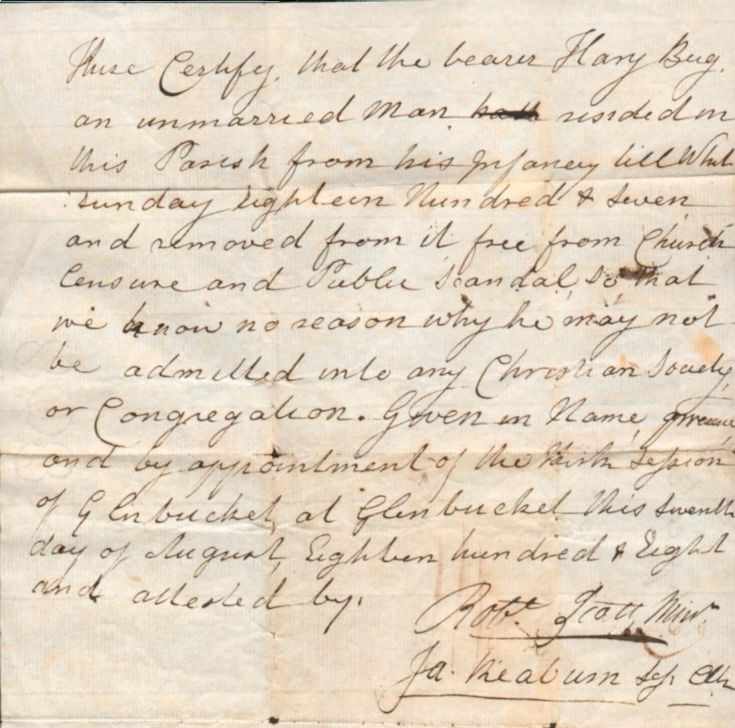 These Certify, that the bearer Hary Beg,
an unmarried Man hath resided in
this Parish from his Infancy till Whit
sunday Eighteen Hundred & Seven
and removed from it free from Church
Censure and Public Scandal, So that
we know no reason why he may not
be admitted into any Christian Society,
or Congregation. Given in Name, presence
and by appointment of the Kirk Session
of Glenbucket, at Glenbucket this seventh
day of August, Eighteen hundred & Eight
and attested by,
Robt. Scott, Minr.
Ja. Reaburn Sess. Clk